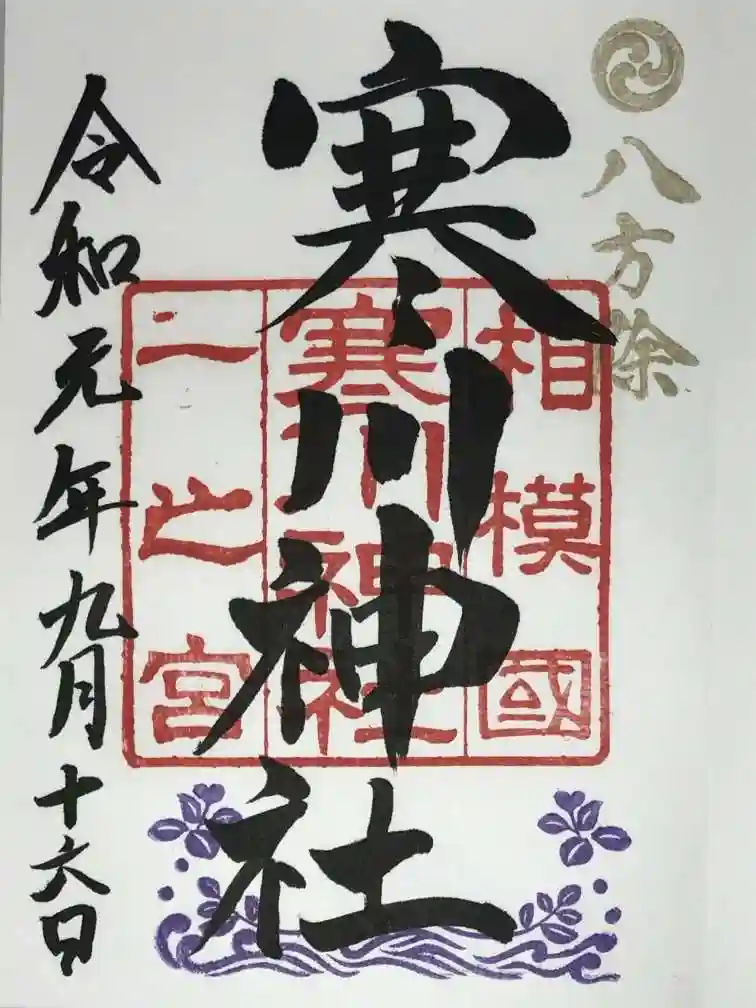 八方除
寒川神社
令和元年九月十六日
相模國
寒川神社
一之宮